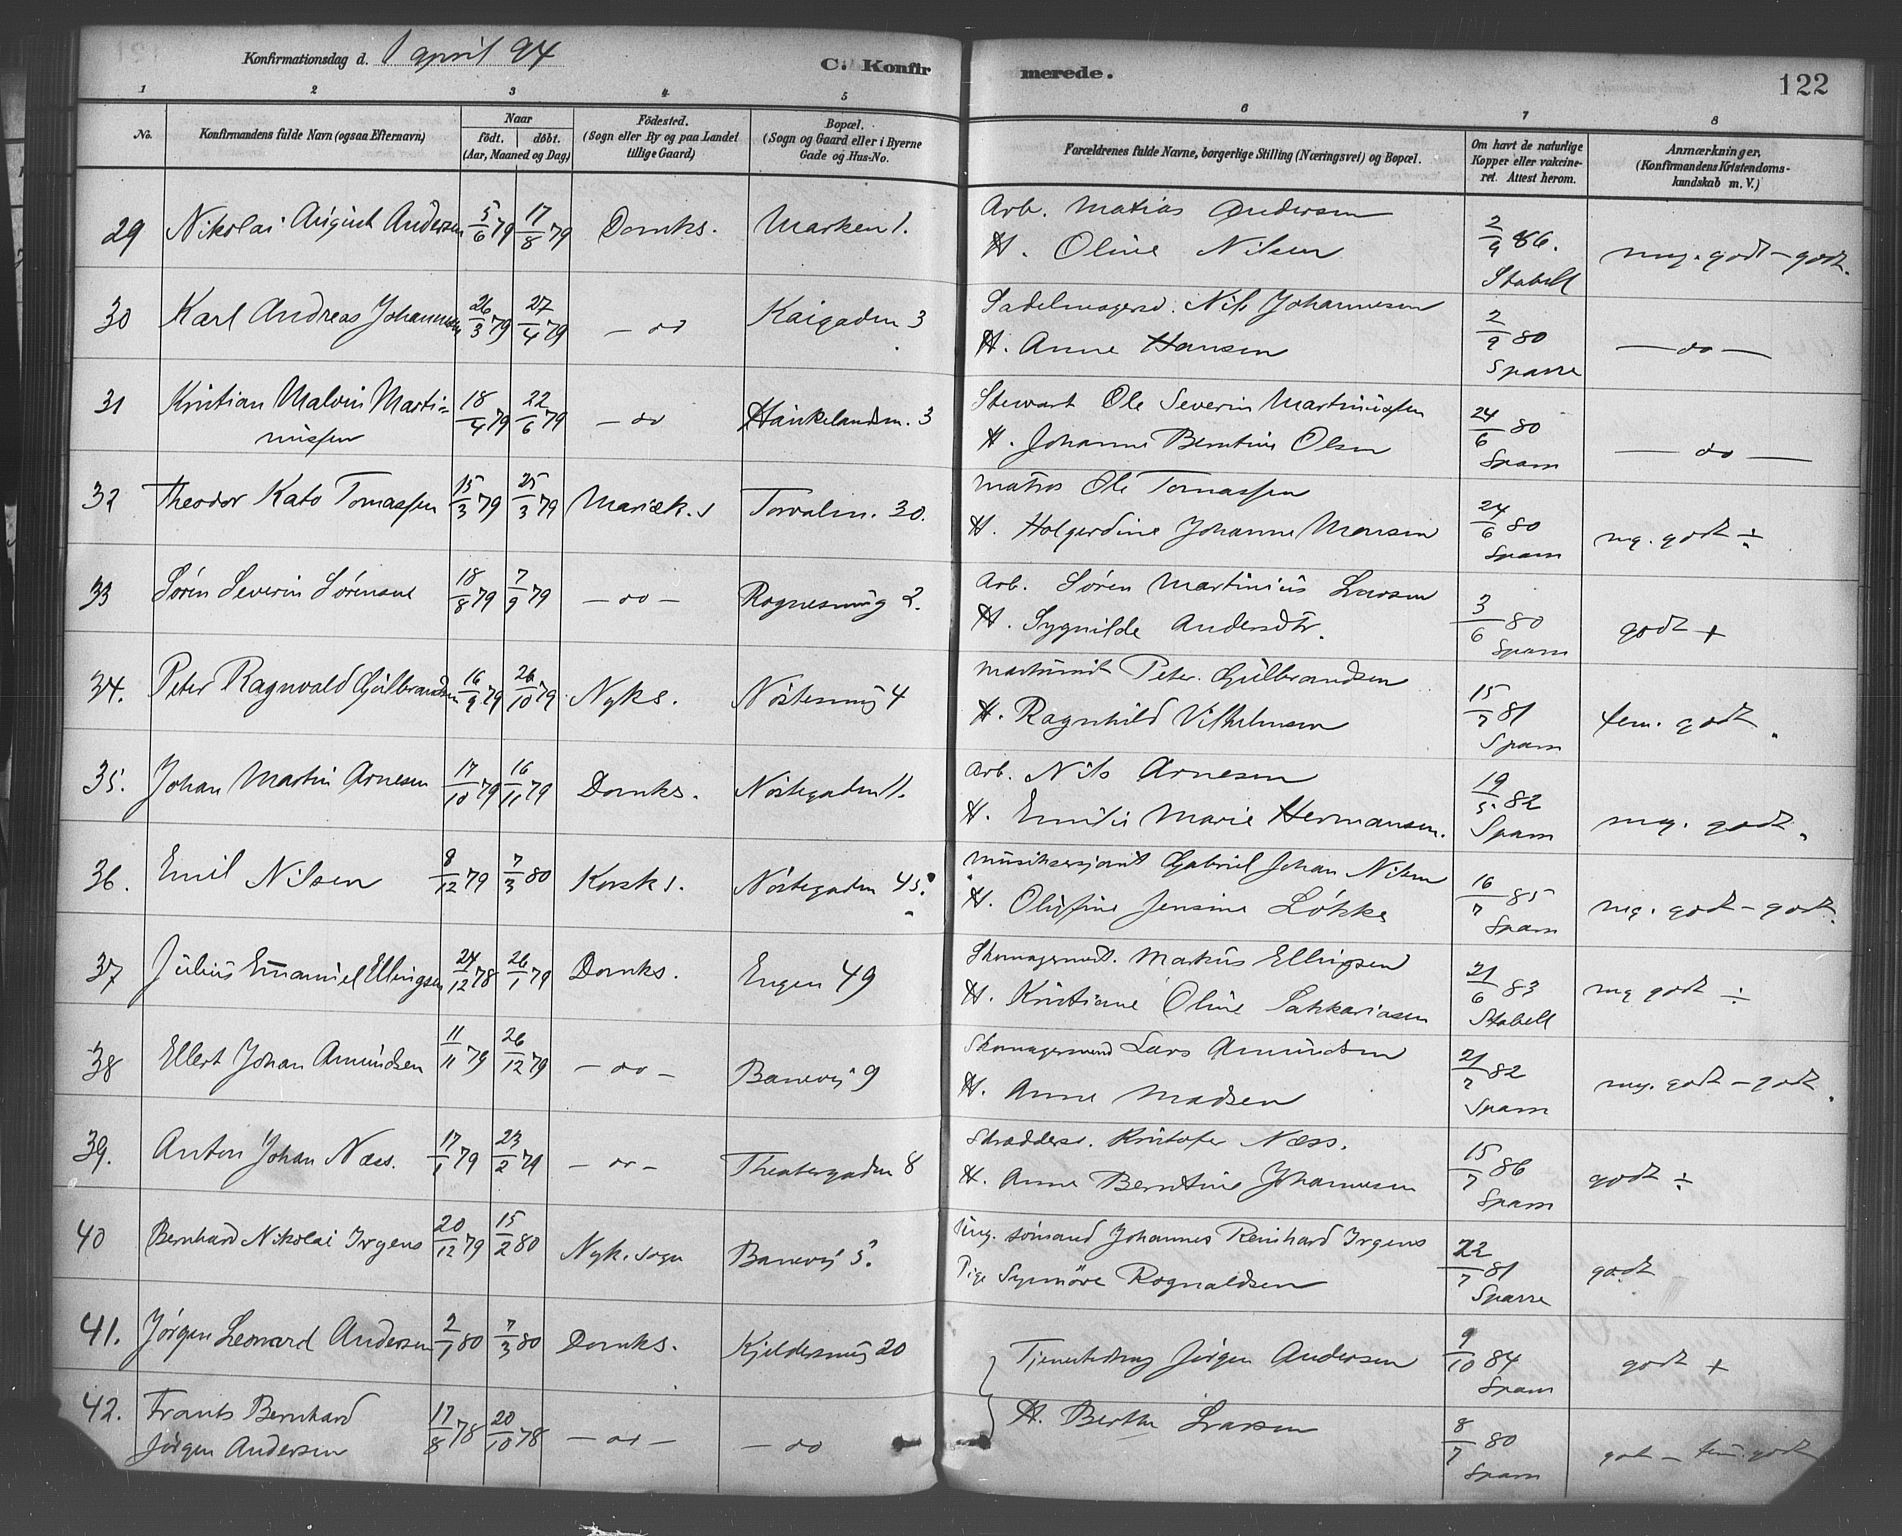 Konfirmationsdag d. 1 april 94
C. Konfirmerede.
122
1 2 3 4 5 6 7 8
No.
Konfirmandens fulde Navn (ogsaa Efternavn)
Naar
födt. döbt.
(Aar, Maaned og Dag)
Födested.
(Sogn eller By og paa Landet
tillige Gaard)
Bopæl.
(Sogn og Gaard eller i Byerne
Gade og Hus-No.
Forældrenes fulde Navne, borgerlige Stilling (Næringsvei) og Bopæl.
Om havt de naturlige
Kopper eller vakcine-
ret. Attest herom.
Anmærkninger,
(Konfirmandens Kristendoms-
kundskab m. V.)
29 Nikolai August Andersen 5/6 79 17/8 79 Domks. Marken 1. Arb. Matias Andersen 2/9 86. mg. godt - godt.
H. Oline Nilsen Stabell
30 Karl Andreas Johannesen 26/3 79 27/4 79 - do Kaigaden 3 Sadelmagersv. Nils Johannesen 2/9 80 - do -
H. Anne Hansen Sparre
31 Kristian Malvin Marti- 18/4 79 22/6 79 - do Haukelandsv. 3 Stewart Ole Severin Martinussen 24/6 80 - do -
nussen H. Johanne Berntine Olsen Sparre
32 Theodor Kato Tomassen 15/3 79 25/3 79 Mariæk. s Torvalm. 30. Matros Ole Tomassen 24/6 80 mg. godt ÷
H. Holgerdine Johanne Monsen Sparre
33 Sören Severin Sörensen 18/8 79 7/9 79 - do - Rognesmug 2. Arb. Sören Martinius Larsen 3/6 80 godt +
H. Sygnilde Andersdtr. Sparre
34. Peter Ragnvald Gulbrandsen 16/9 79 26/10 79 Nyks. Nöstesmug 4 Peter Gulbrandsen 15/7 81 tem. godt.
H. Ragnhild Vilhelmsen Sparre
35. Johan Martin Arnesen 17/10 79 16/11 79 Domks. Nöstegaden 11. Arb. Nils Arnesen 19/5 82 mg. godt.
H. Emilie Marie Hermansen. Sparre
36. Emil Nilsen 8/12 79 7/3 80 Korsk s. Nöstegaden 45. Musiksersjant Gabriel Johan Nilsen 16/7 85 mg. godt - godt.
H. Olufine Jensine Lökke Sparre
37 Julius Emanuel Ellingsen 24/12 78 26/1 79 Domks. Engen 49 Skomagermest. Markus Ellingsen 21/6 83 mg godt ÷
H. Kristiane Oline Sakkariasen Stabell
38 Ellert Johan Amundsen 11/11 79 26/12 79 - do - Banevej 9 Skomagersvend Lars Amundsen 21/7 82 mg. godt - godt.
H. Anne Madsen Sparre
39. Anton Johan Næss. 17/1 79 23/2 79 - do - Theatergaden 8 Skræddersv. Kristofer Næss. 15/7 86 godt ÷
H. Anne Berntine Johannesen Sparre
40 Bernhard Nikolai Irgens 20/12 79 15/2 80 Nyk. sogn Banevej 5. Ung. sömand Johannes Reinhard Irgens 22/7 81 godt
Pige Synnöve Rognaldsen Sparre
41. Jörgen Leonard Andersen 2/1 80 7/3 80 Domks. Kjeldersmug 20 Tjenestedreng Jörgen Andersen 9/10 84 godt +
Sparre
42. Frants Bernhard 17/8 78 20/10 78 - do - - do H. Berthe Larsen 8/7 80 godt - tem. godt
Jörgen Andersen Sparre